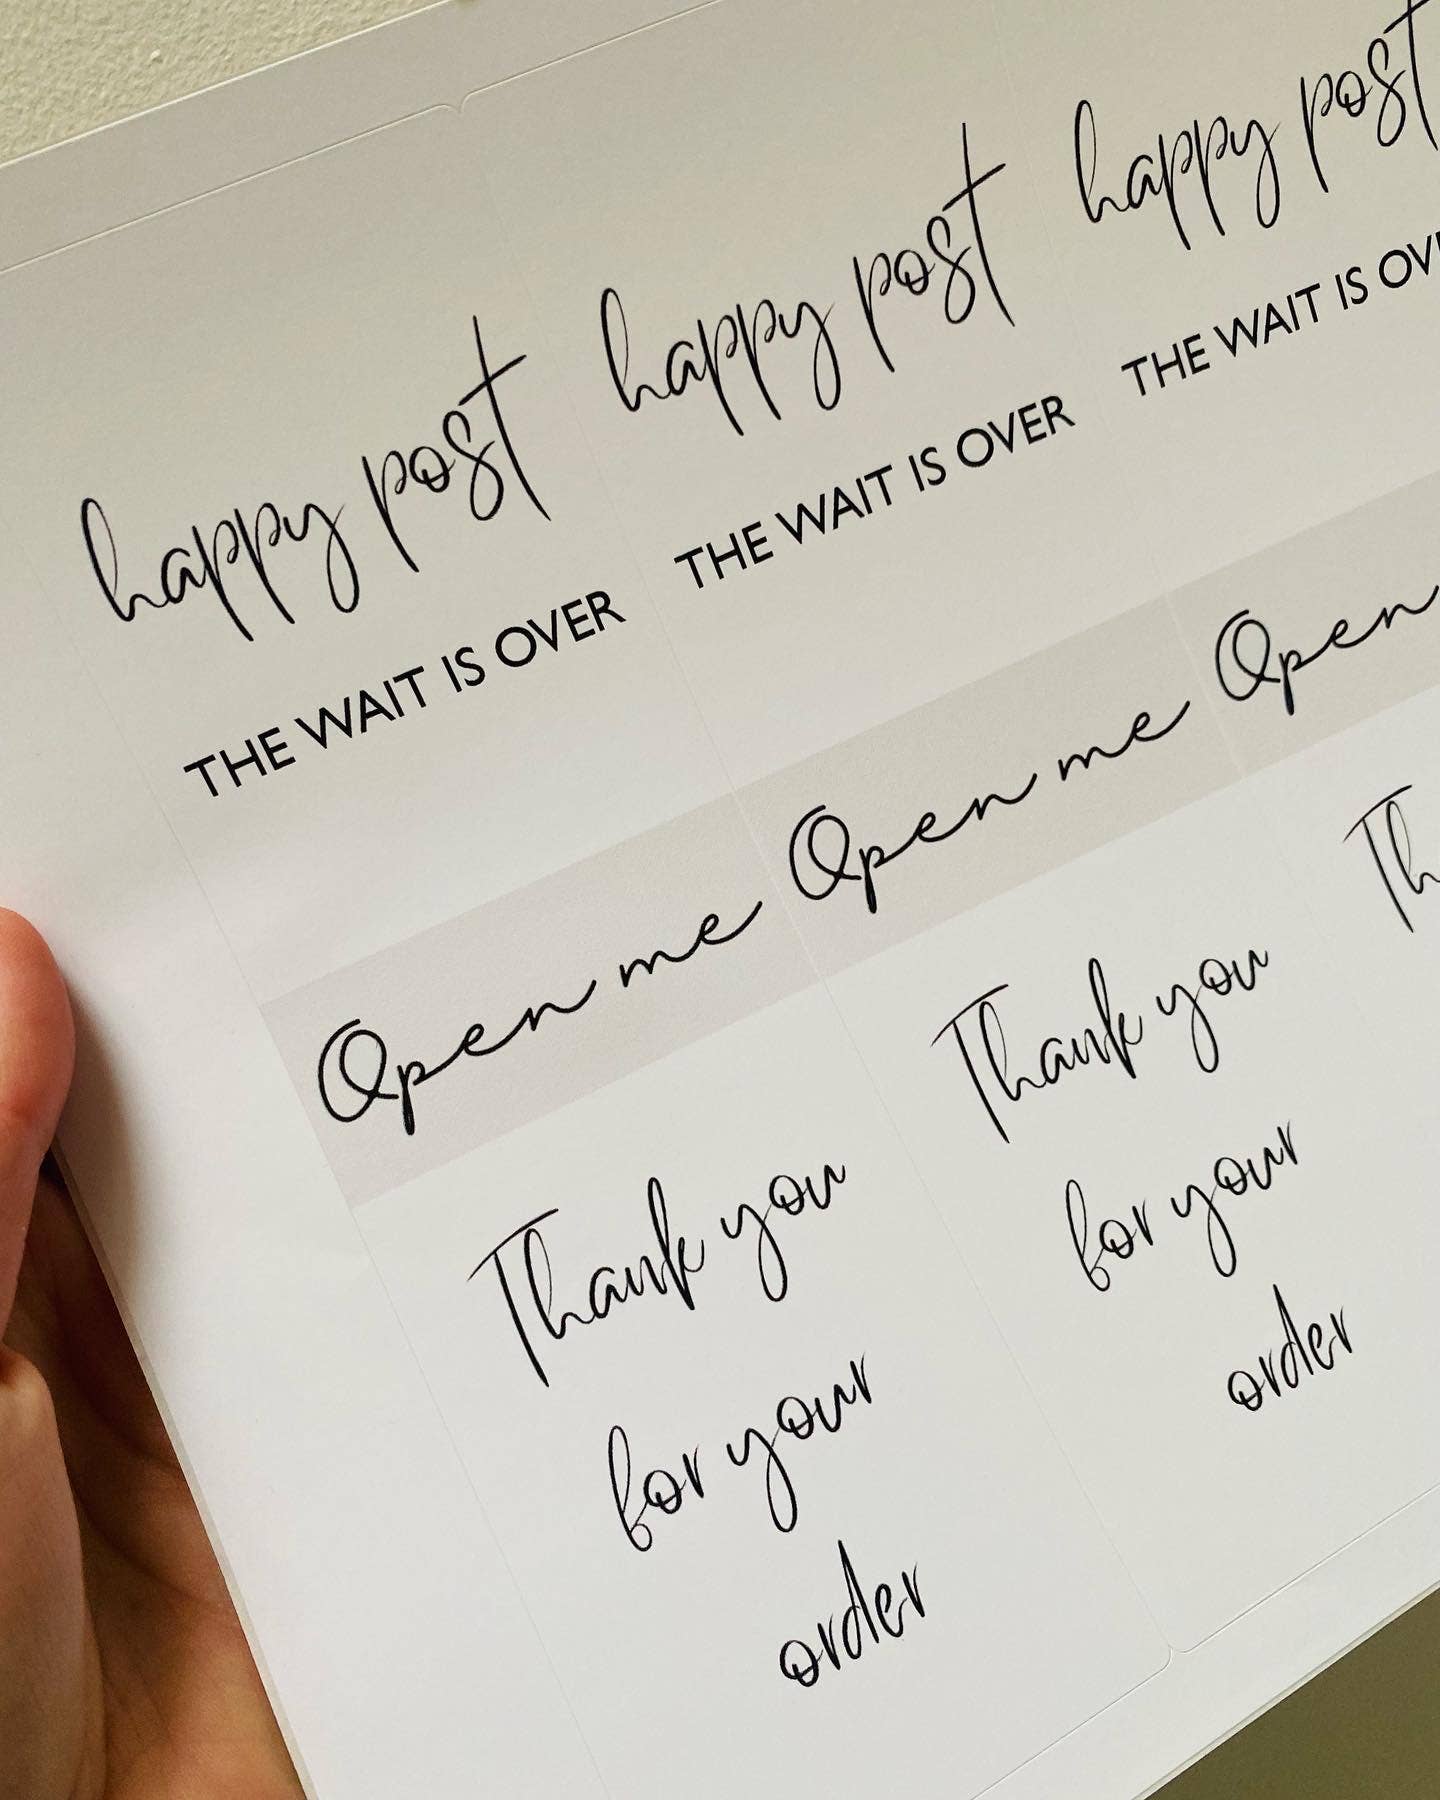 happy post
THE WAIT IS OVER
Open me
Thank you
for your
order
happy post
THE WAIT IS OVER
Open me
Thank you
for your
order
happy post
THE WAIT IS
Open